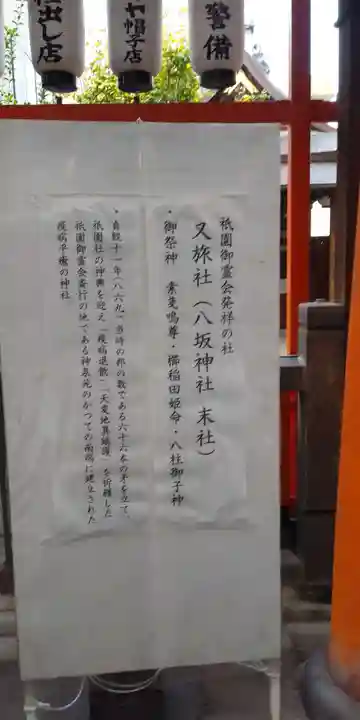 出し店
ヤ帽子店
警備
祇園御霊会発祥の社
又旅社（八坂神社 末社）
・御祭神　素戔嗚尊・櫛稲田姫命・八柱御子神
・貞観十一年（八六九）当時の邦の数である六十六本の矛を立て、
祇園社の神輿を迎え「疫病退散」「天変地異鎮護」を祈願した
祇園御霊会斎行の地である神泉苑のかつての南端に建立された
疫病平癒の神社